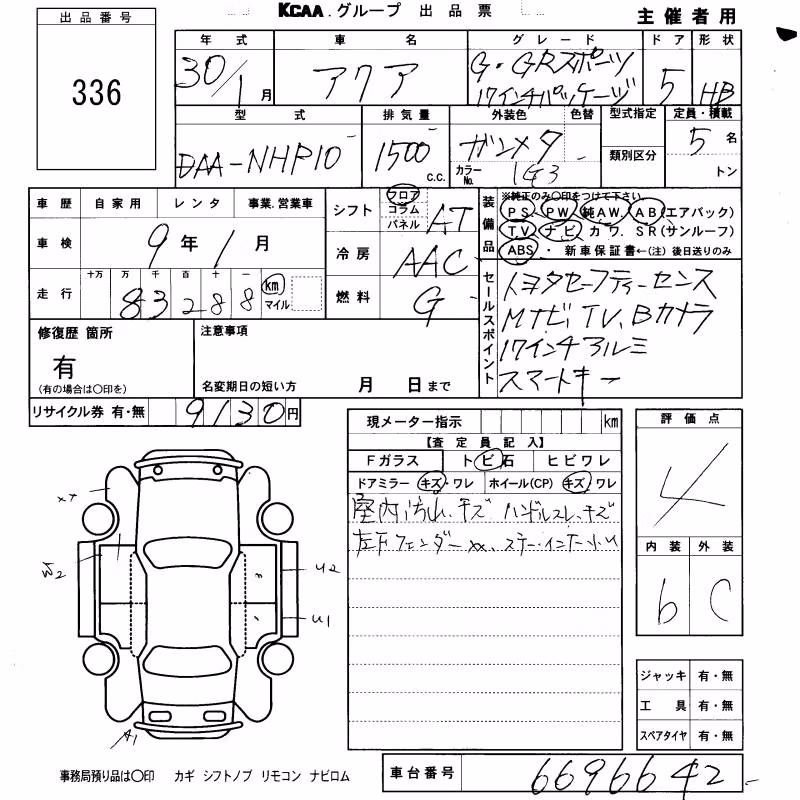 KCAA.グループ 出品票
主催者用
出品番号
336
年式 車名 グレード ドア 形状
30/1月 アクア G・GRスポーツ 17インチパッケージ 5 HB
型式 排気量 外装色 色替 型式指定 定員・積載
DAA-NHP10 1500 c.c. ガンメタ 類別区分 5名
カラーNo. 1G3 トン
車歴 自家用 レンタ 事業.営業車
車検 9年1月
走行 十万 万 千 百 十 一
83288 km マイル
シフト フロア コラム パネル AT
冷房 AAC
燃料 G
装備品
※純正のみ〇印をつけて下さい
PS PW 純AW. AB(エアバック)
TV ナビ カワ. SR(サンルーフ)
ABS・新車保証書←(注)後日送りのみ
セールスポイント
トヨタセーフティーセンス
Mナビ、TV、Bカメラ
17インチアルミ
スマートキー
修復歴 箇所
有
(有の場合は〇印を)
注意事項
名変期日の短い方 月 日まで
リサイクル券 有・無 9130円
現メーター指示 km
【査定員記入】
Fガラス トビ石 ヒビワレ
ドアミラー キズ・ワレ ホイール(CP) キズ.ワレ
室内汚れ、キズ ハンドルスレ、キズ
左Fフェンダーxx、ステー・インナー小U
評価点
4
内装 外装
b C
x+
W2
U2
U1
A1
ジャッキ 有・無
工具 有・無
スペアタイヤ 有・無
事務局預り品は〇印 カギ シフトノブ リモコン ナビロム
車台番号 6696642